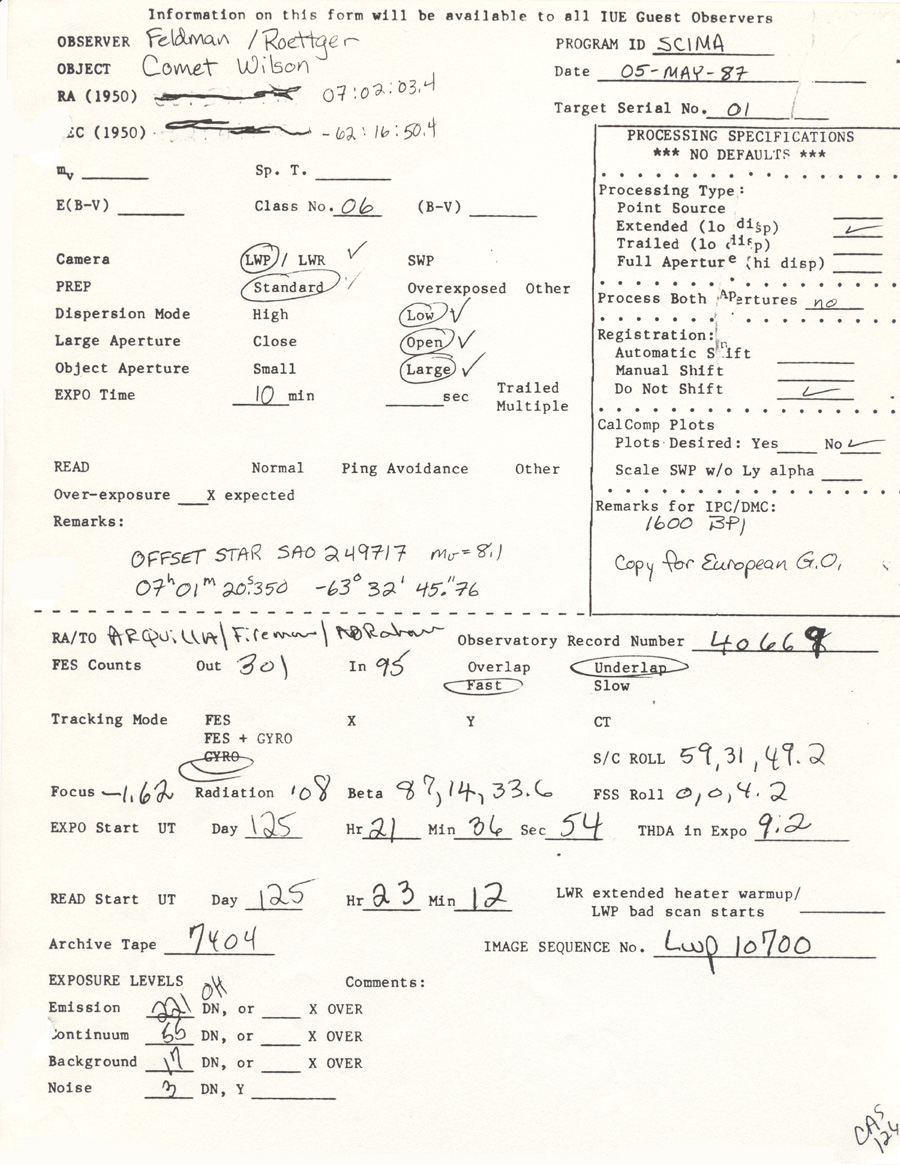 Information on this form will be available to all IUE Guest Observers
OBSERVER Feldman / Roettger
PROGRAM ID SCIMA
OBJECT Comet Wilson
Date 05-MAY-87
RA (1950) 07:02:03.4
Target Serial No. 01
EC (1950) -62:16:50.4
PROCESSING SPECIFICATIONS
*** NO DEFAULTS ***
mv ____ Sp. T. ____
E(B-V) ____ Class No. 06 (B-V) ____
Processing Type:
Point Source
Extended (lo disp) ✓
Trailed (lo disp)
Full Aperture (hi disp)
Camera LWP / LWR ✓ SWP
PREP Standard ✓ Overexposed Other
Process Both Apertures no
Dispersion Mode High Low ✓
Large Aperture Close Open ✓
Object Aperture Small Large ✓
EXPO Time 10 min ____ sec Trailed
Multiple
Registration:
Automatic Shift
Manual Shift
Do Not Shift ✓
CalComp Plots
Plots Desired: Yes ____ No ✓
Scale SWP w/o Ly alpha ____
READ Normal Ping Avoidance Other
Over-exposure ____ X expected
Remarks:
OFFSET STAR SAO 249717 mv = 8.1
07h 01m 20s.350 -63° 32' 45."76
Remarks for IPC/DMC:
1600 BPI
Copy for European G.O.
RA/TO ARQUILLA/Fireman/
Observatory Record Number
FES Counts Out 301 In 95 Overlap Underlap
Fast Slow
Tracking Mode FES X Y CT
FES + GYRO
GYRO
S/C ROLL 59,31,49.2
Focus -1.62 Radiation .08 Beta 87,14,33.6 FSS Roll 0,0,4.2
EXPO Start UT Day 125 Hr 21 Min 36 Sec 54 THDA in Expo 9.2
READ Start UT Day 125 Hr 23 Min 12 LWR extended heater warmup/
LWP bad scan starts ____
Archive Tape 7404 IMAGE SEQUENCE No. Lwp 10700
EXPOSURE LEVELS OH Comments:
Emission 221 DN, or ____ X OVER
Continuum 55 DN, or ____ X OVER
Background 17 DN, or ____ X OVER
Noise 3 DN, Y ____
CAS
124